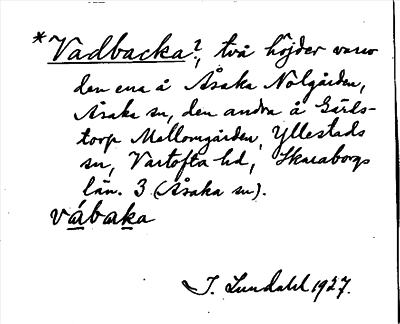 *Vadbacka?, två höjder varav
den ena å Åsaka Nolgården,
Åsaka sn, den andra å Gärls-
torp Mellomgården, Yllestads
sn, Vartofta hd, Skaraborgs
län. 3 (Åsaka sn).
vábaka
J. Lundahl 1927.